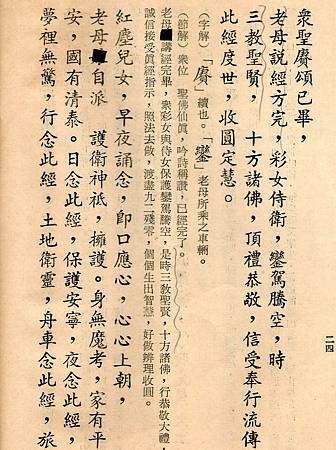 衆聖賡頌已畢，
老母說經方完，彩女侍衛，鑾駕騰空，時
三教聖賢，十方諸佛，頂禮恭敬，信受奉行流傳
此經度世，收圓定慧。
（字解）「賡」續也。「鑾」老母所乘之車輛。
（節解）衆位　聖佛仙眞，吟詩稱讚，已經完了。
老母講經完畢，衆彩女與侍女保護鑾駕騰空，是時三教聖賢，十方諸佛，行恭敬大禮，
誠信接受眞經指示，照法去做，渡盡九二殘零，個個生出智慧，好做辨理收圓。
紅塵兒女，早夜誦念，卽口應心，心心上朝，
老母自派　護衛神祇，擁護。身無魔考，家有平
安，國有清泰。日念此經，保護安寧，夜念此經，
夢裡無驚，行念此經，土地衛靈，舟車念此經，旅
二四